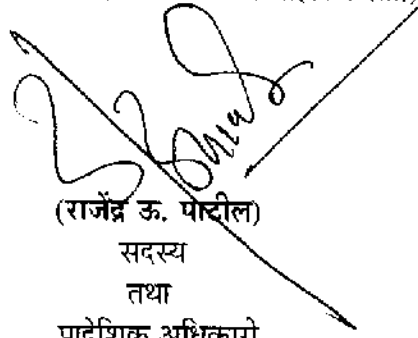 (राजेंद्र ऊ. पाटील)
सदस्य
तथा
प्रादेशिक अधिकारी